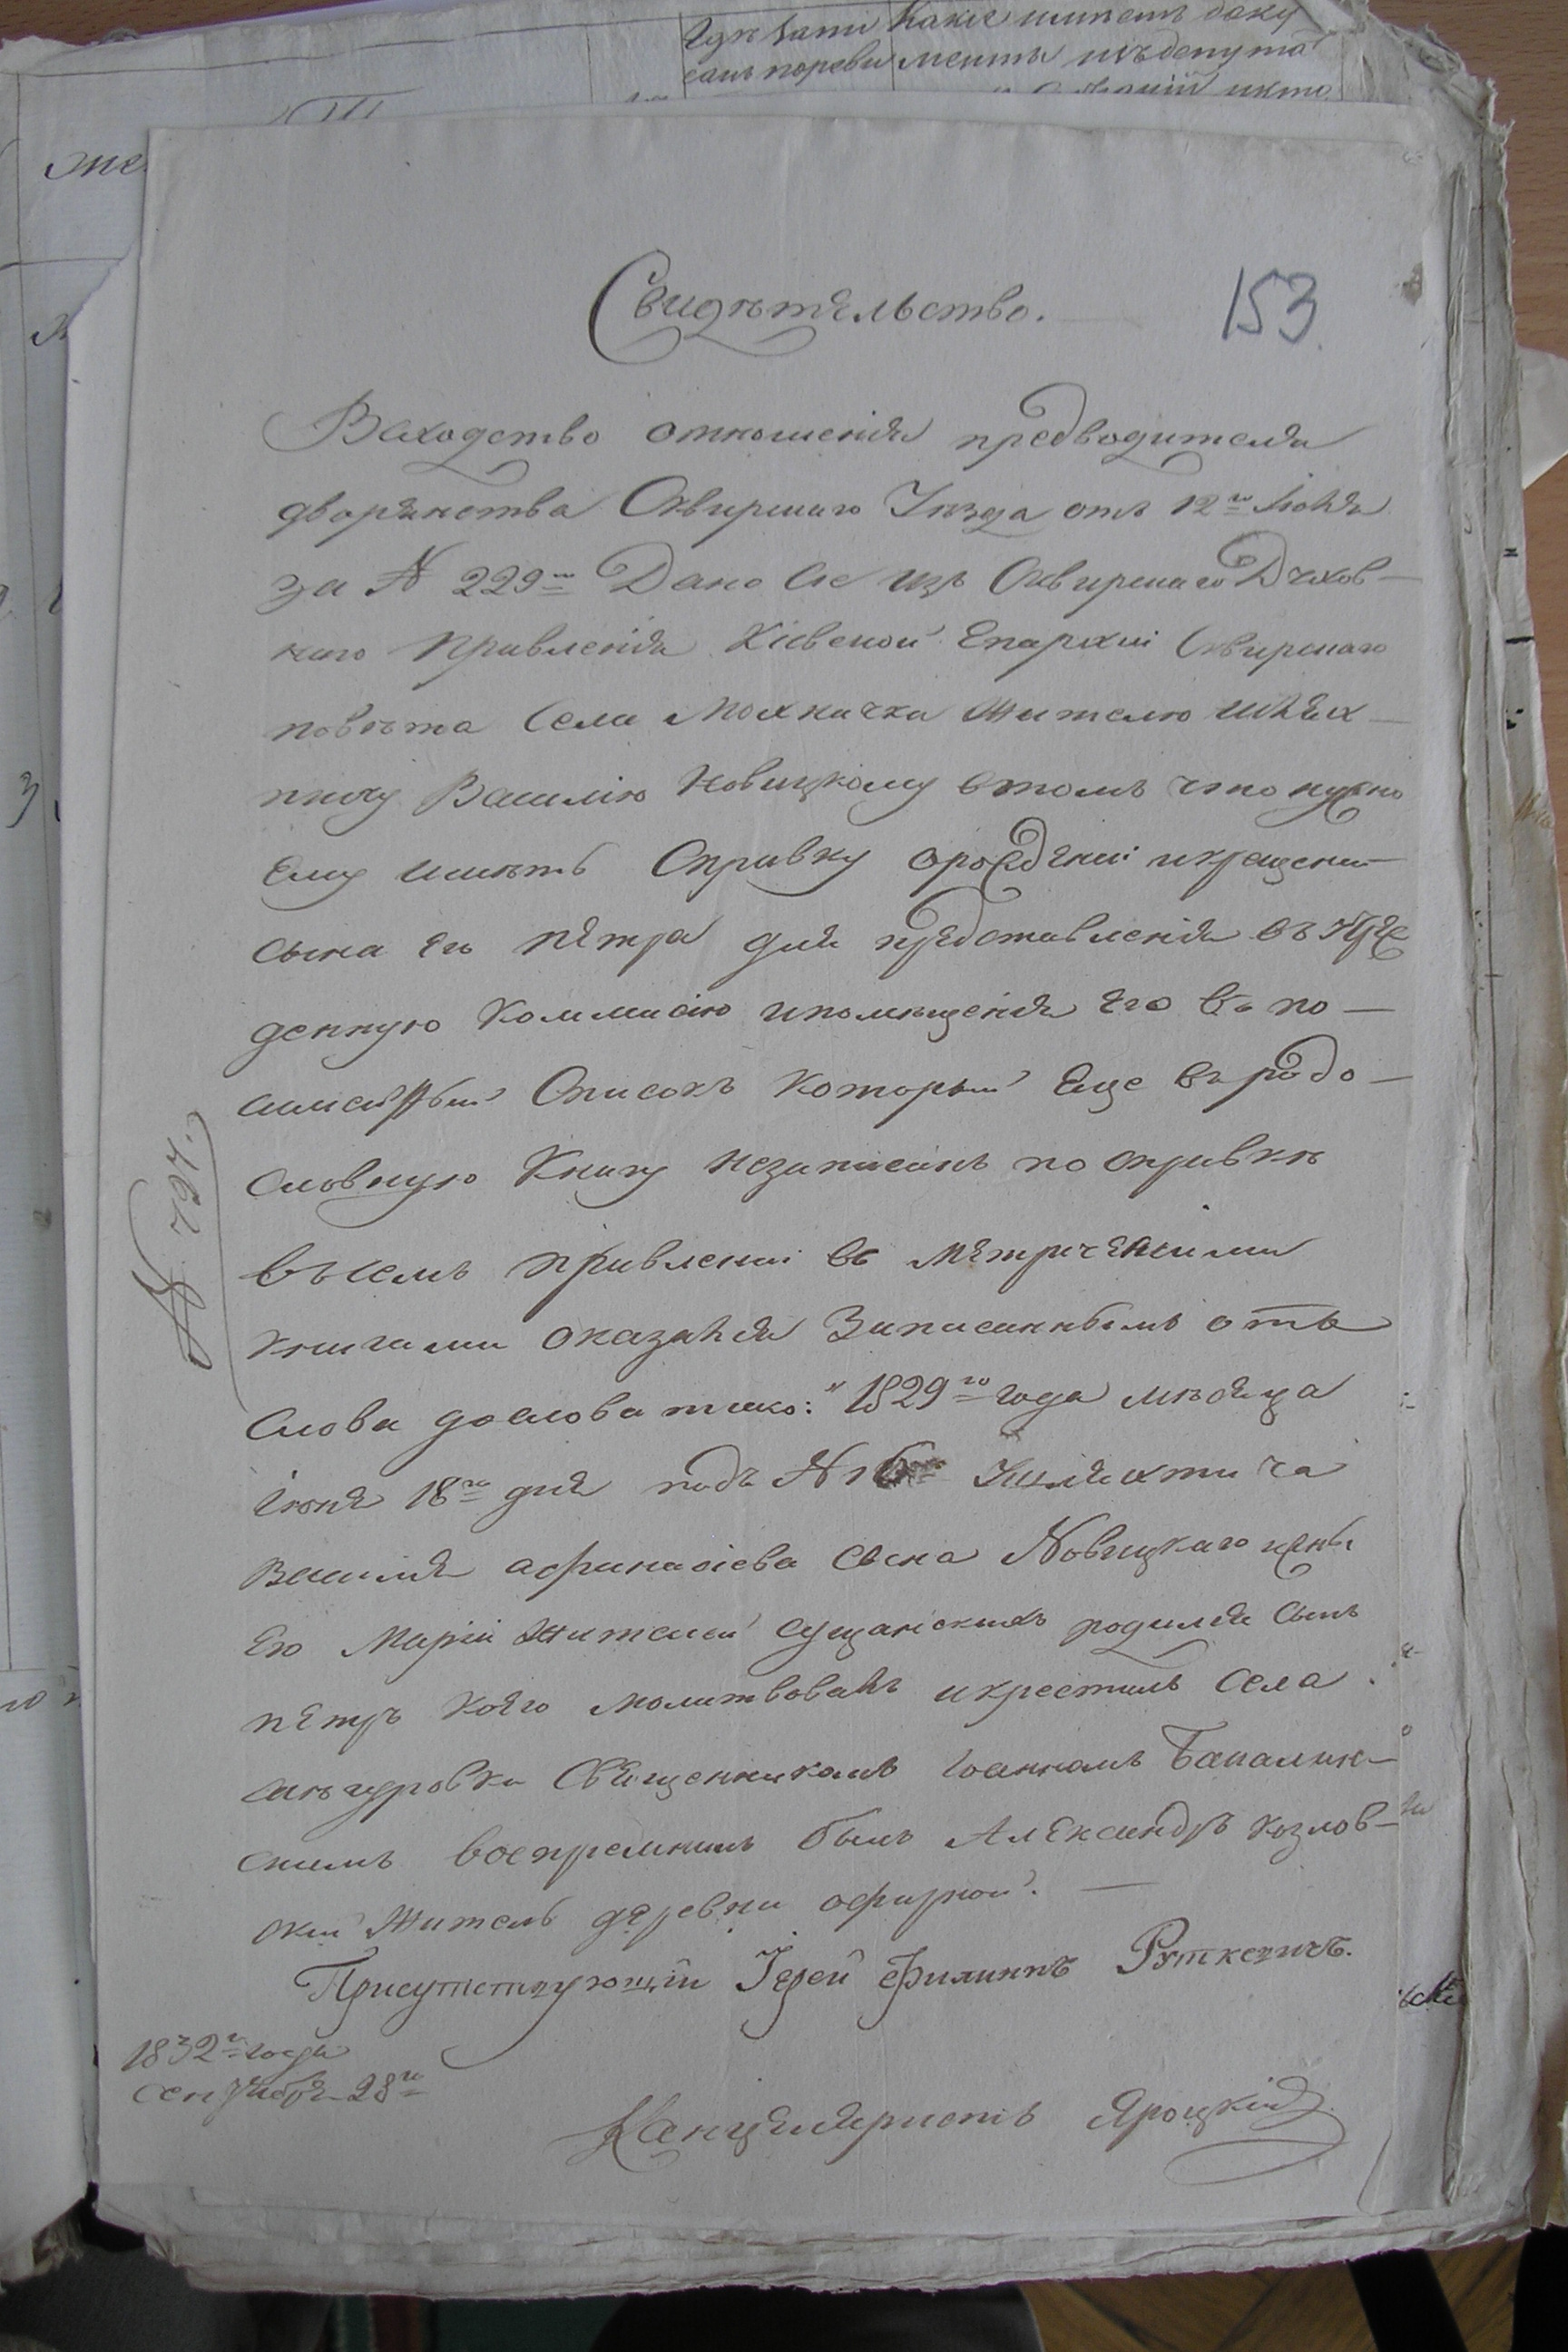 Гдѣ сами Какіе имѣетъ доку
сами пореви менты изъ депута
же
153
Свидѣтельство.
Въсходство отношенія предводителя
дворянства Сквирскаго Уѣзда отъ 12го Іюля
за № 229м Дано Сіе изъ Сквирскаго Духов-
наго Правленія Кіевской Епархіи Сквирскаго
повѣта Села Мохначки Жителю шлях-
тичу Василію Новицкому втомъ что нужно
Ему имѣть Справку орожденіи икрещени
Сына Его Петра для представленія въ Учре
денную Коммисію ипомѣщенія Его въ по-
Списокъ Который Еще въродо-
словную Книгу незаписанъ по справкѣ
въсемъ правленіи съ метрическими
книгами оказался Записаннымъ отъ
Слова дослова тако: "1829го года мѣсяца
Іюня 18го дня подъ № 16 Ушляхтича
Василія афанасіева Сына Новицкаго ижены
Его Маріи Жителей Сущанскихъ родился Сынъ
Петръ Коего молитвовалъ икрестилъ Села
Священникомъ Іоанномъ
скимъ воспремникъ былъ Александръ Козлов-
скій Житель деревни офирной. —
Присутствующій Іерей Филиппъ Руткевичъ.
1832г года
Сентября 28го
Канцеляристъ Яроцкій